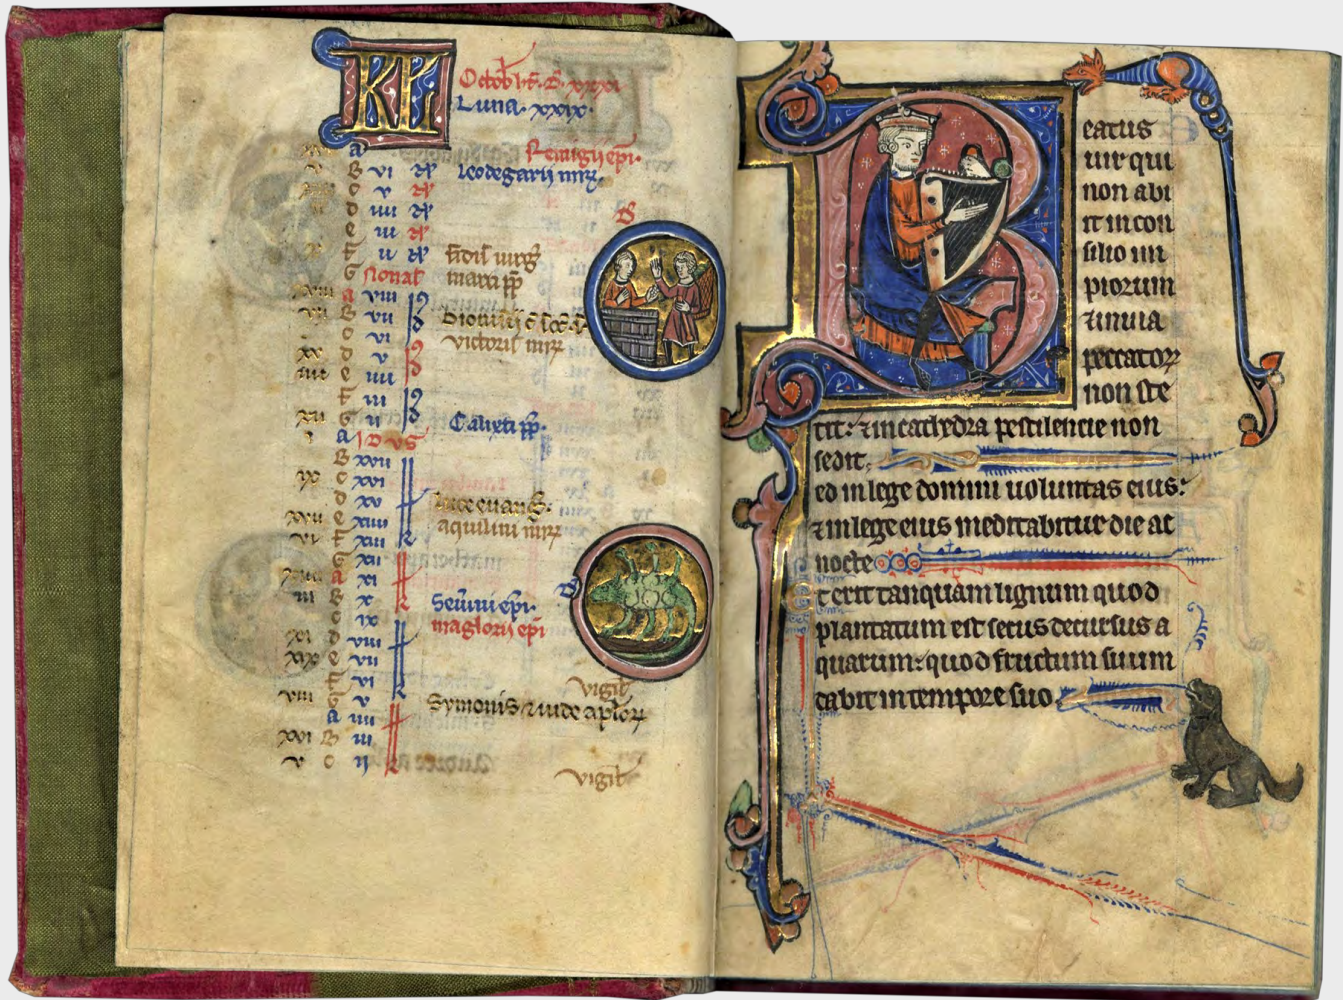 KL
Octob’ h̄t. d̄. xxxi
Luna. xxix.
a Remigii ep̄i.
v b vi leodegarii m̄r
c v
d iiii
e iii
f ii fidis virḡ
G Nonas marci p̄p
a viii
b vii dionisii
c vi victoris m̄r
d v
e iiii
f iii
G ii Calixti p̄p.
i a IDVS
b xvii
ix c xvi
d xv luce euanḡ.
e xiiii aquilini m̄r
vi f xiii
G xii
a xi
iii b x Seuerini ep̄i.
c ix maglorii ep̄i
xi d viii
xix e vii
f vi vigil̄
viii G v Symonis & iude ap̄lor
a iiii
xvi b iii
v c ii vigil̄
B
eatus
uir qui
non abi
it in con
silio im
piorum
& in uia
peccator
non ste
tit: & in cathedra pestilencie non
sedit.
ed in lege domini uoluntas eius:
& in lege eius meditabitur die ac
nocte
t erit tanquam lignum quod
plantatum est secus decursus a
quarum: quod fructum suum
dabit in tempore suo